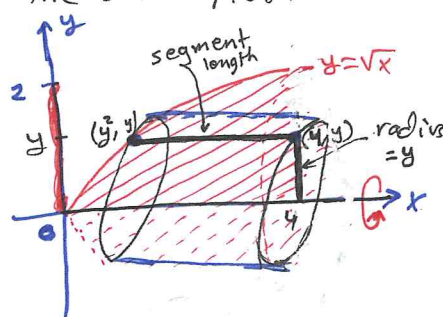 y
segment
length
y=√x
2
(y², y)
(4, y)
radius
=y
y
4
x
0